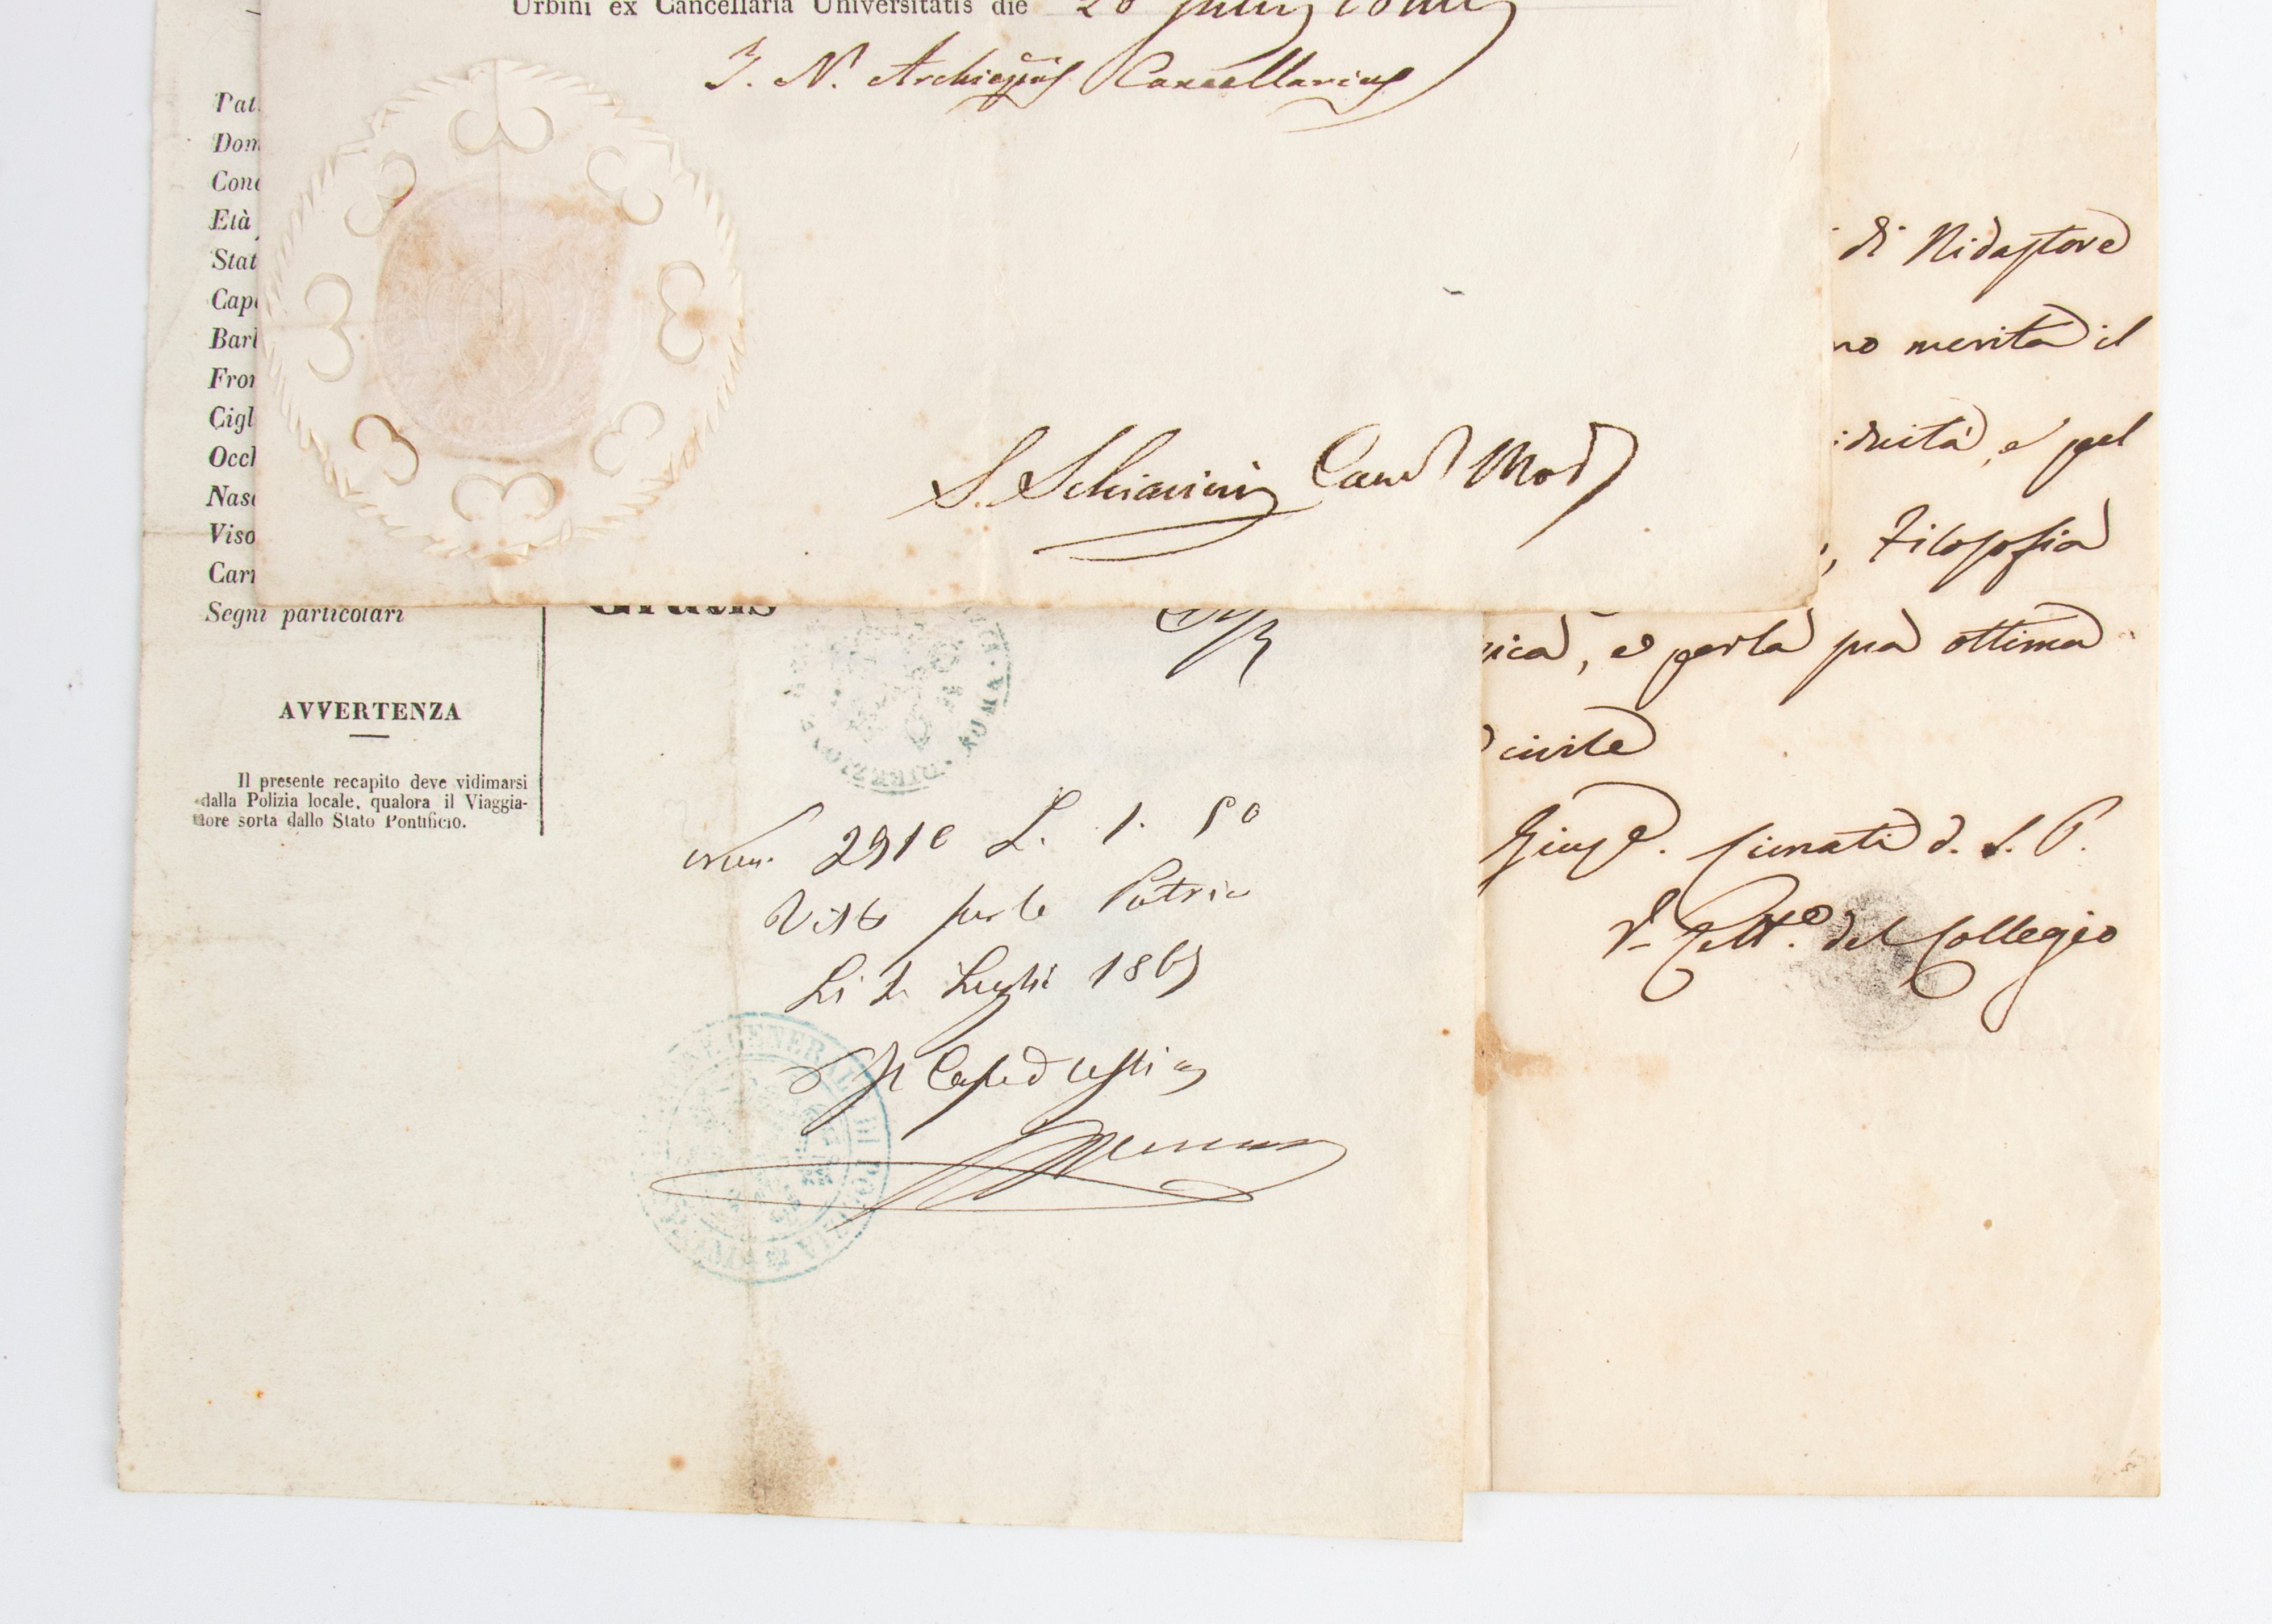 Urbini ex Cancellaria Universitatis die 20
J. N. Archiepus Cancellarius
S. Schiavini Canc Mod
Pat
Dom
Con
Età
Stat
Cap
Bar
Fron
Cigl
Occ
Nas
Viso
Car
Segni particolari
Gratis
AVVERTENZA
Il presente recapito deve vidimarsi
dalla Polizia locale, qualora il Viaggia-
tore sorta dallo Stato Pontificio.
DIREZIONE
ROMA
Num. 2910 L. 1. 50
Visto per la Patria
Li 2 Luglio 1865
GENERALE DI POLIZIA
di Nidastore
no merita il
iduità, e pel
, Filosofia
ica, e per la sua ottima
civile
Giuspe. d. S. P.
Rett.e del Collegio